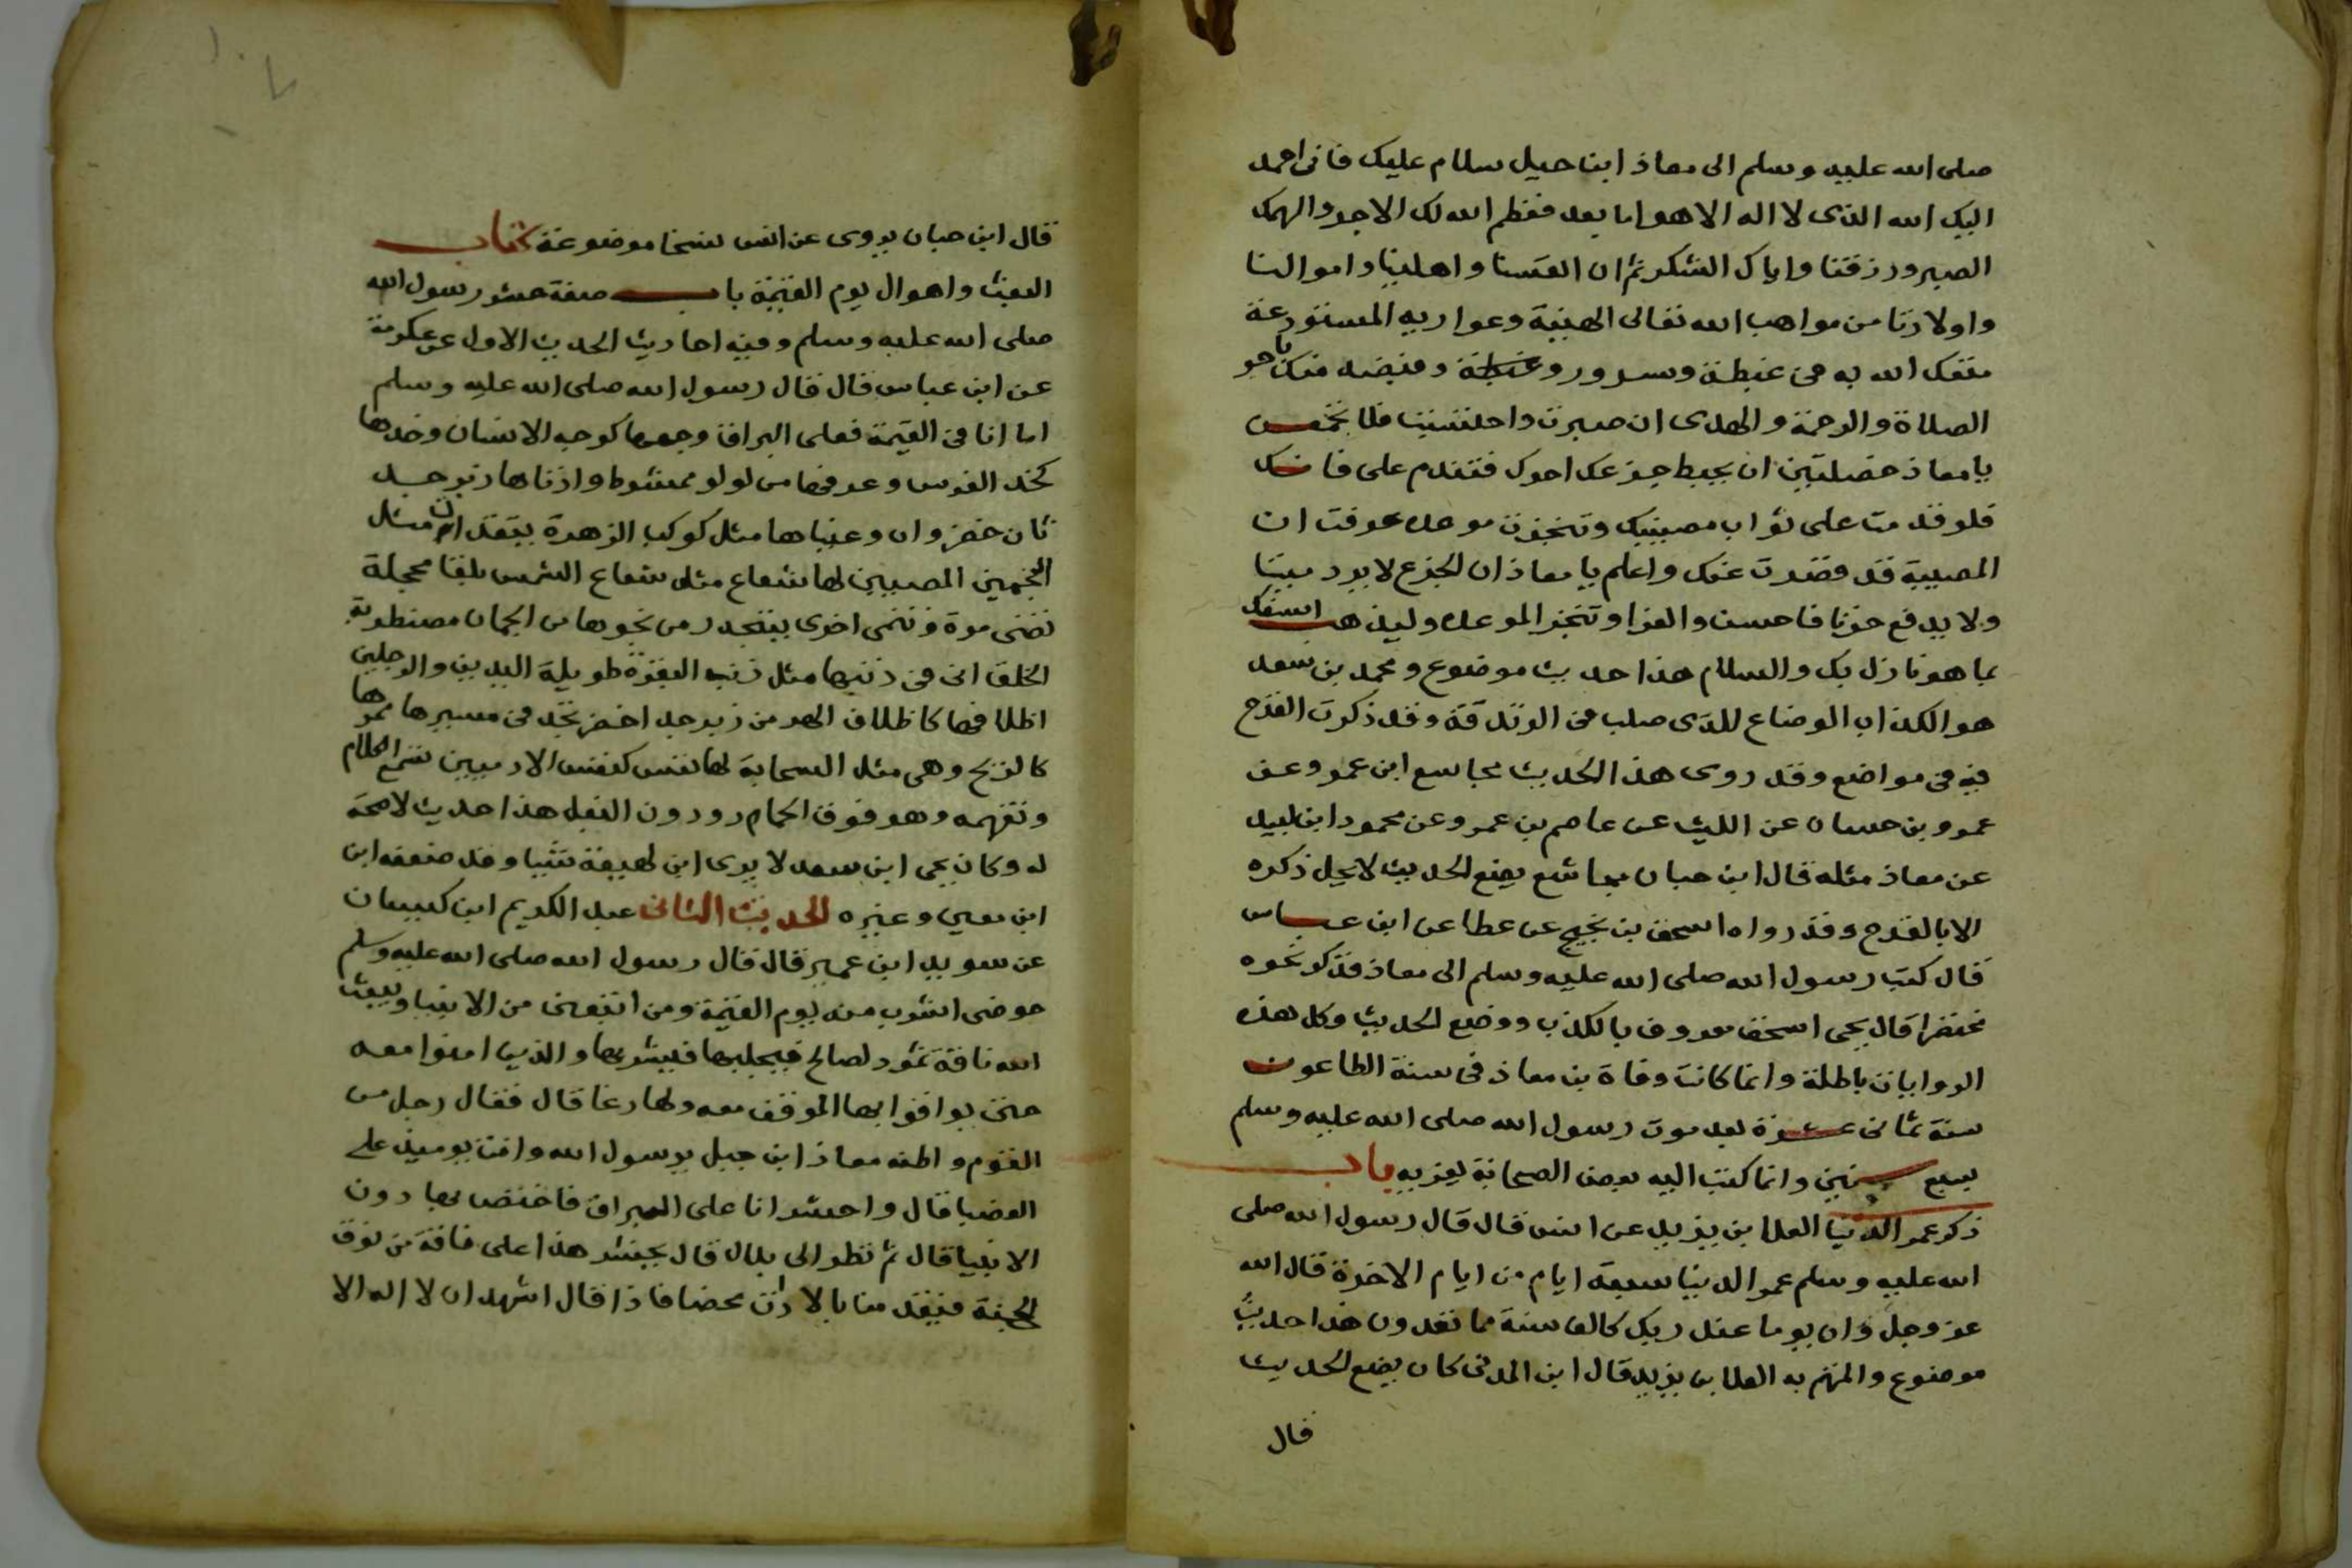 صلى الله عليه وسلم الى معاذ ابن جبل سلام عليك فانى احمد
اليك الله الذى لا اله الا هو اما بعد فعظم الله لك الاجر والهمك
الصبر ورزقنا واياك الشكر ثم ان انفسنا واهلينا واموالنا
واولادنا من مواهب الله تعالى الهنية وعواريه المستودعة
متعك الله به فى غبطة وسرور وقبضه منك باجر
الصلاة والرحمة والهدى ان صبرت واحتسبت فلا تجمعن
يا معاذ خصلتين ان يحبط جزعك اجرك فتندم على فاتك
فلو قدمت على ثواب مصيبتك وتنجزت موعده عرفت ان
المصيبة قد قصرت عنك واعلم يا معاذ ان الجزع لا يرد ميتا
ولا يدفع حزنا فاحسن والعزا وتنجز الموعد وليذهب اسفك
بما هو نازل بك والسلام هذا حديث موضوع ومحمد بن سعد
هو الكذاب الوضاع للذى صلب فى الزندقة وقد ذكرت القدح
فيه فى مواضع وقد روى هذا الحديث مجاسع ابن عمرو عن
عمرو بن حسان عن الليث عن عاصم بن عمر وعن محمود ابن لبيد
عن معاذ مثله قال ابن حبان مجاشع يضع الحديث لا يحل ذكره
الا بالقدح وقد رواه اسحق بن نجيح عن عطا عن ابن عباس
قال كتب رسول الله صلى الله عليه وسلم الى معاذ فذكر نحوه
مختصرا قال يحيى اسحق معروف بالكذب ووضع الحديث وكل هذه
الروايات باطلة وانما كانت وفاة بن معاذ فى سنة الطاعون
سنة ثمانى عشرة بعد موت رسول الله صلى الله عليه وسلم
بسبع سنين وانما كتب اليه بعض الصحابة يعزيه باب
ذكر عمر الدنيا العلا بن يزيد عن انس قال قال رسول الله صلى
الله عليه وسلم عمر الدنيا سبعة ايام من ايام الاخرة قال الله
عز وجل وان يوما عند ربك كالف سنة مما تعدون هذا حديث
موضوع والمتهم به العلا بن يزيد قال ابن المدنى كان يضع الحديث
قال
قال ابن حبان يروى عن انس نسخا موضوعة كتاب
البعث واهوال يوم القيمة باب صفة حشر رسول الله
صلى الله عليه وسلم وفيه احاديث الحديث الاول عن عكرمة
عن ابن عباس قال قال رسول الله صلى الله عليه وسلم
اما انا فى القيمة فعلى البراق وجهها كوجه الانسان وخدها
كخد الفرس وعرفها من لولو ممشوط واذناها زبرجد
تان خضروان وعيناها مثل كوكب الزهرة يتقدان مثل
النجمين المضيين لها شعاع مثل شعاع الشمس بلقا محجلة
تضى مرة وتنمى اخرى يتحدر من نحرها من الجمان مضطربة
الخلق اتى فى ذنبها مثل ذنب البقرة طويلة اليدين والرجلين
اظلافها كاظلاف الهر من زبرجد اخضر تجد فى مسيرها ممرها
كالريح وهى مثل السحابة لها نفس كنفس الادميين تسمع الكلام
وتفهمه وهو فوق الحمار ودون البغل هذا حديث لا صحة
له وكان يحى ابن سعد لا يرى ابن لهيعة شيئا وقد ضعفه ابن
ابن معين وغيره الحديث الثانى عبد الكريم ابن كيسان
عن سويد ابن عمير قال قال رسول الله صلى الله عليه وسلم
حوضى اشرب منه يوم القيمة ومن اتبعنى من الانبيا ويبعث
الله ناقة ثمود لصالح فيحلبها فيشربها والذين امنوا معه
حتى يوافوا بها الموقف معه ولها رغا قال فقال رجل من
القوم واظنه معاذ ابن جبل يرسول الله وانت يوميذ على
العضبا قال واحشر انا على البراق فاختص بها دون
الانبيا قال ثم نظر الى بلال قال يحشر هذا على ناقة من نوق
الجنة فيقدمنا بالاذان محضا فاذا قال اشهد ان لا اله الا